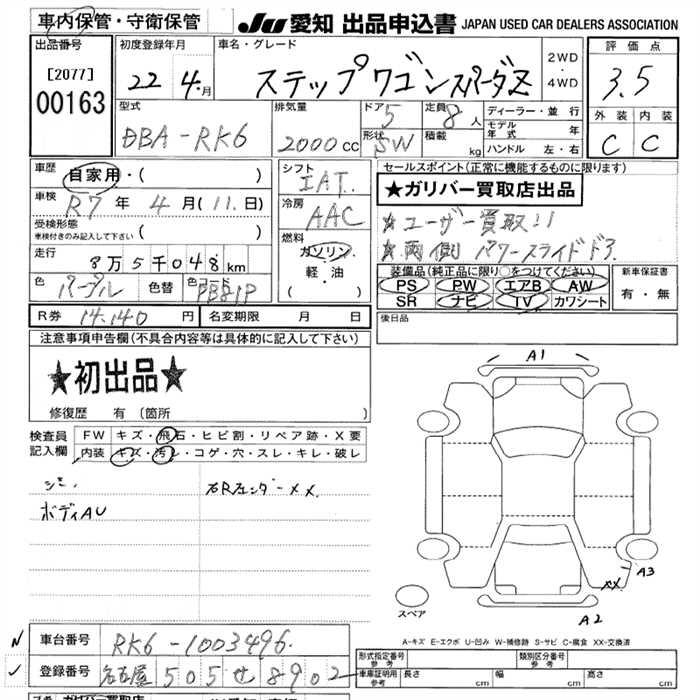 車内保管・守衛保管
JU 愛知 出品申込書 JAPAN USED CAR DEALERS ASSOCIATION
出品番号 [2077] 00163
初度登録年月 22 4月
車名・グレード ステップワゴンスパーダZ
2WD・4WD
評価点 3.5
外装 C 内装 C
型式 DBA-RK6
排気量 2000cc
ドア 5 形状 SW
定員 8人 積載 kg
ディーラー・並行
モデル年式 年
ハンドル 左・右
車歴 自家用・( )
車検 R7年 4月(11日)
受検形態
車検付きのみ記入して下さい ( )
走行 8万5千048km
色 パープル 色替 色コード PB81P
シフト IAT.
冷房 AAC
燃料 ガソリン・軽・油 ( )
セールスポイント(正常に機能するものに限ります)
★ガリバー買取店出品
★ユーザー買取!!
★両側パワースライドドア.
装備品(純正品に限り○をつけてください)
PS PW エアB AW
SR ナビ TV カワシート
新車保証書 有・無
R券 14,140円 名変期限 月 日
後日品
注意事項申告欄(不具合内容等は具体的に記入して下さい)
★初出品★
修復歴 有(箇所 )
検査員記入欄
FW キズ・飛石・ヒビ割・リペア跡・X要
内装 キズ・汚レ・コゲ・穴・スレ・キレ・破レ
ボディAU
A1
A3
XX
A2
スペア
A-キズ E-エクボ U-凹み W-補修跡 S-サビ C-腐食 XX-交換済
車台番号 RK6-1003496.
登録番号 名古屋 505 せ 8902
形式指定番号 参考 類別区分番号 参考
車庫証明用 参考 長さ cm 幅 cm 高さ cm